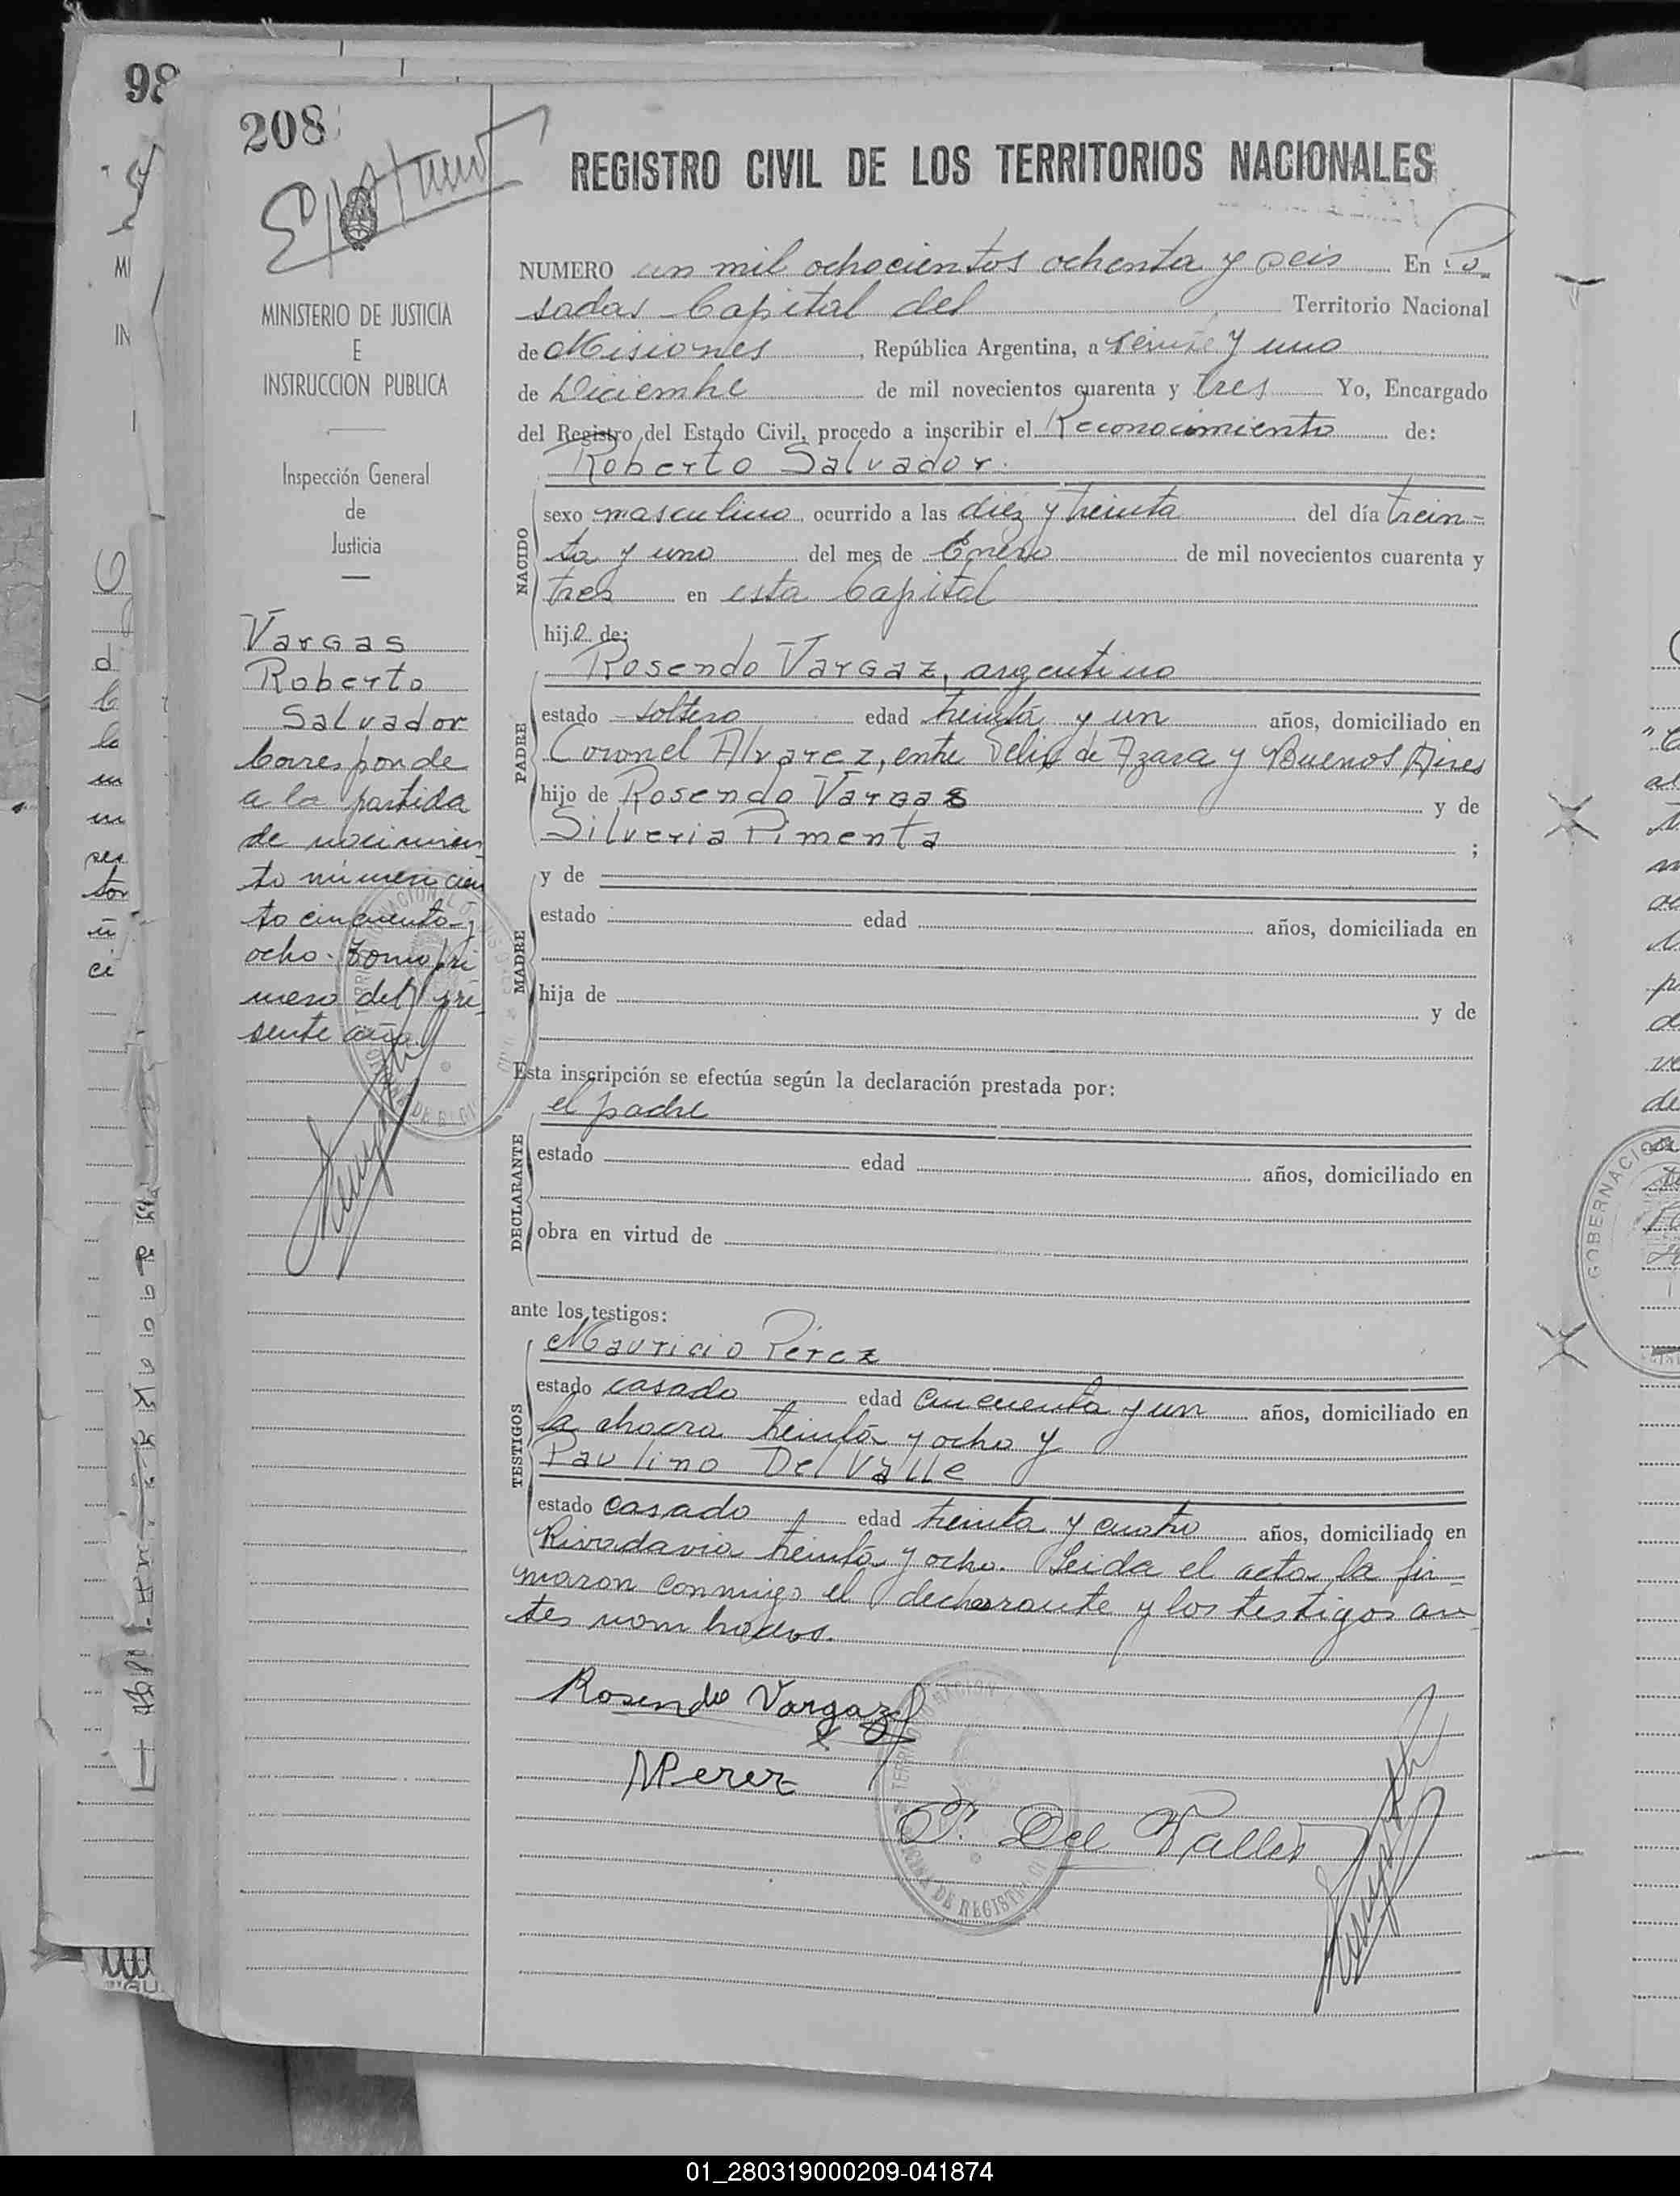 208
REGISTRO CIVIL DE LOS TERRITORIOS NACIONALES
MINISTERIO DE JUSTICIA
E
INSTRUCCION PUBLICA
Inspección General
de
Justicia
Vargas
Roberto
Salvador
Corresponde
a la partida
de nacimien
to número cien
to cincuenta y
ocho. Tomo pri
mero del pre
sente año.
NUMERO un mil ochocientos ochenta y seis En Po
sadas Capital del Territorio Nacional
de Misiones, República Argentina, a veinte y uno
de Diciembre de mil novecientos cuarenta y tres Yo, Encargado
del Registro del Estado Civil, procedo a inscribir el Reconocimiento de:
Roberto Salvador.
NACIDO
sexo masculino ocurrido a las diez y treinta del día trein=
ta y uno del mes de Enero de mil novecientos cuarenta y
tres en esta Capital
hijo de:
Rosendo Vargaz, argentino
PADRE
estado soltero edad treinta y un años, domiciliado en
Coronel Alvarez, entre Felix de Azara y Buenos Aires
hijo de Rosendo Vargas y de
Silveria Pimenta ;
MADRE
y de
estado edad años, domiciliada en
hija de y de
Esta inscripción se efectúa según la declaración prestada por:
el padre
DECLARANTE
estado edad años, domiciliado en
obra en virtud de
ante los testigos:
TESTIGOS
Mauricio Pérez
estado casado edad cincuenta y un años, domiciliado en
la chacra treinta y ocho y
Paulino Del Valle
estado casado edad treinta y cuatro años, domiciliado en
Rivadavia treinta y ocho. Leida el acta la fir=
maron conmigo el declarante y los testigos an
tes nombrados.
Rosendo Vargaz
MPerez
P. Del Valle
01_280319000209-041874